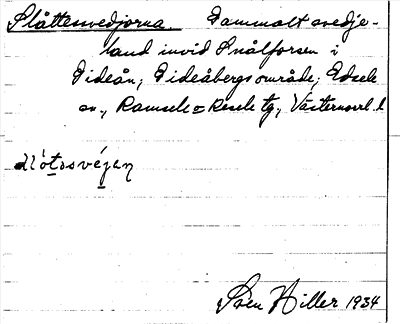 Slåttesvedjorna. Gammalt svedje-
land invid Snålforsen i
Gideån; Gideåbergs område; Edsele
sn, Ramsele = Resele tg, Västernorrl. l
Sven Hiller 1934